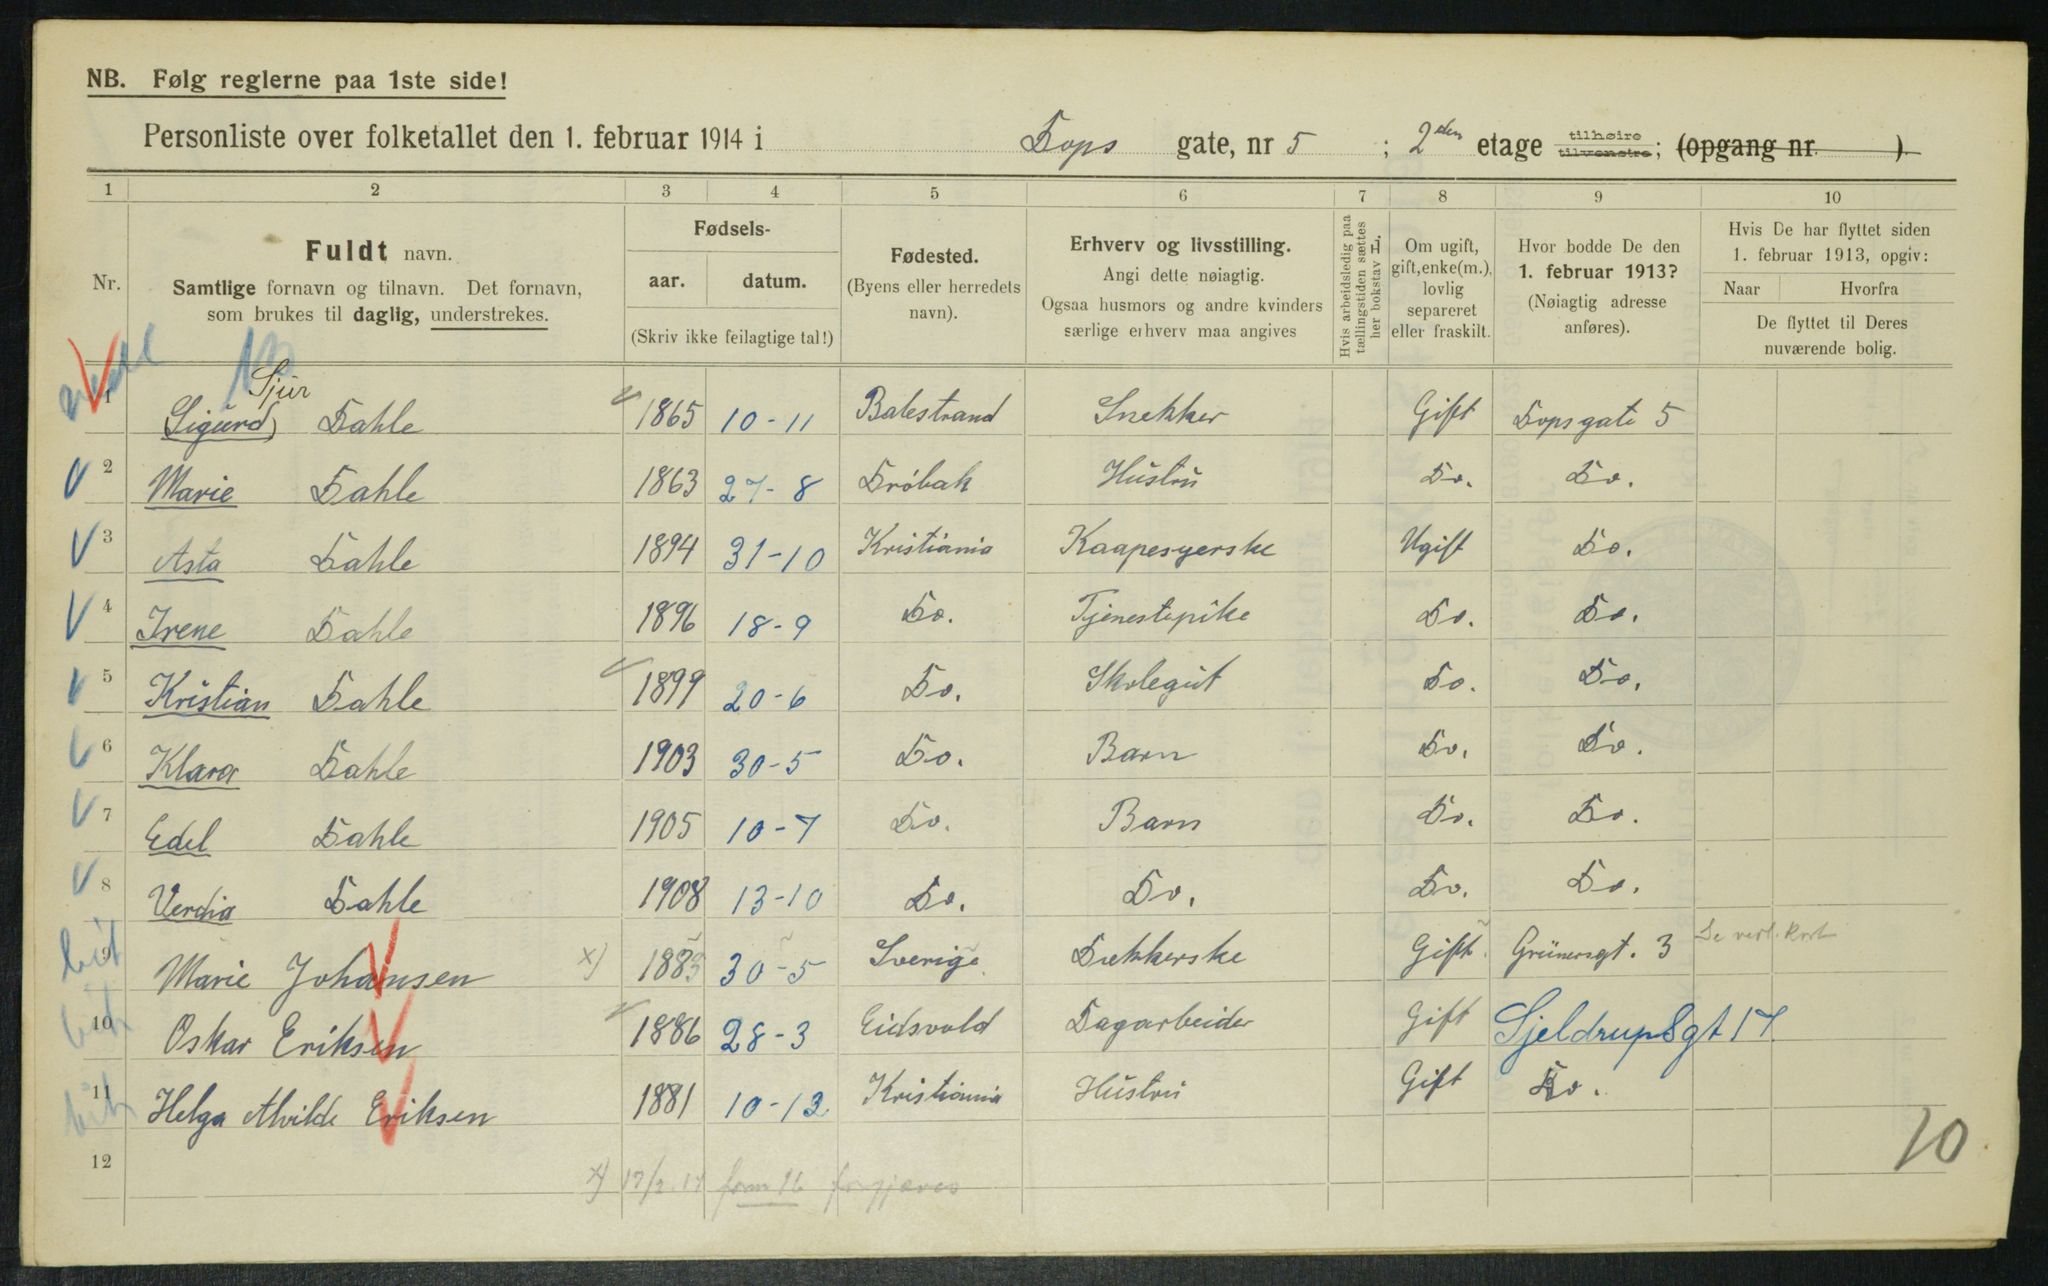 NB. Følg reglerne paa 1ste side!
Personliste over folketallet den 1. februar 1914 i Dops gate, nr 5 ; 2den etage tilhøire tilvenstre; (opgang nr. )
1 2 3 4 5 6 7 8 9 10
Nr.
Fuldt navn.
Samtlige fornavn og tilnavn. Det fornavn,
som brukes til daglig, understrekes.
Fødsels-
aar. datum.
(Skriv ikke feilagtige tal!)
Fødested.
(Byens eller herredets
navn).
Erhverv og livsstilling.
Angi dette nøiagtig.
Ogsaa husmors og andre kvinders
særlige erhverv maa angives
Hvis arbeidsledig paa
tællingstiden sættes
her bokstav L.
Om ugift,
gift, enke(m.),
lovlig
separeret
eller fraskilt.
Hvor bodde De den
1. februar 1913?
(Nøiagtig adresse
anføres).
Hvis De har flyttet siden
1. februar 1913, opgiv:
Naar Hvorfra
De flyttet til Deres
nuværende bolig.
Sjur
1 (Sigurd) Dahle 1865 10-11 Balestrand Snekker Gift Dopsgate 5
2 Marie Dahle 1863 27-8 Drøbak Hustru Do. Do.
3 Asta Dahle 1894 31-10 Kristiania Kaapesyerske Ugift Do.
4 Irene Dahle 1896 18-9 Do. Tjenestepike Do. Do.
5 Kristian Dahle 1899 20-6 Do. Skolegut Do. Do.
6 Klara Dahle 1903 30-5 Do. Barn Do. Do.
7 Edel Dahle 1905 10-7 Do. Barn Do. Do.
8 Verdia Dahle 1908 13-10 Do. Do. Do. Do.
bit 9 Marie Johansen x) 1883 30-5 Sverige Dekkerske Gift Grünersgt. 3 Se vert. kort
bit 10 Oskar Eriksen 1886 28-3 Eidsvold Dagarbeider Gift Sjeldrupsgt 17
bit 11 Helga Alvilde Eriksen 1881 10-12 Kristiania Hustru Gift Do.
12
x) 17/2.14 form 16 forgjæves
10